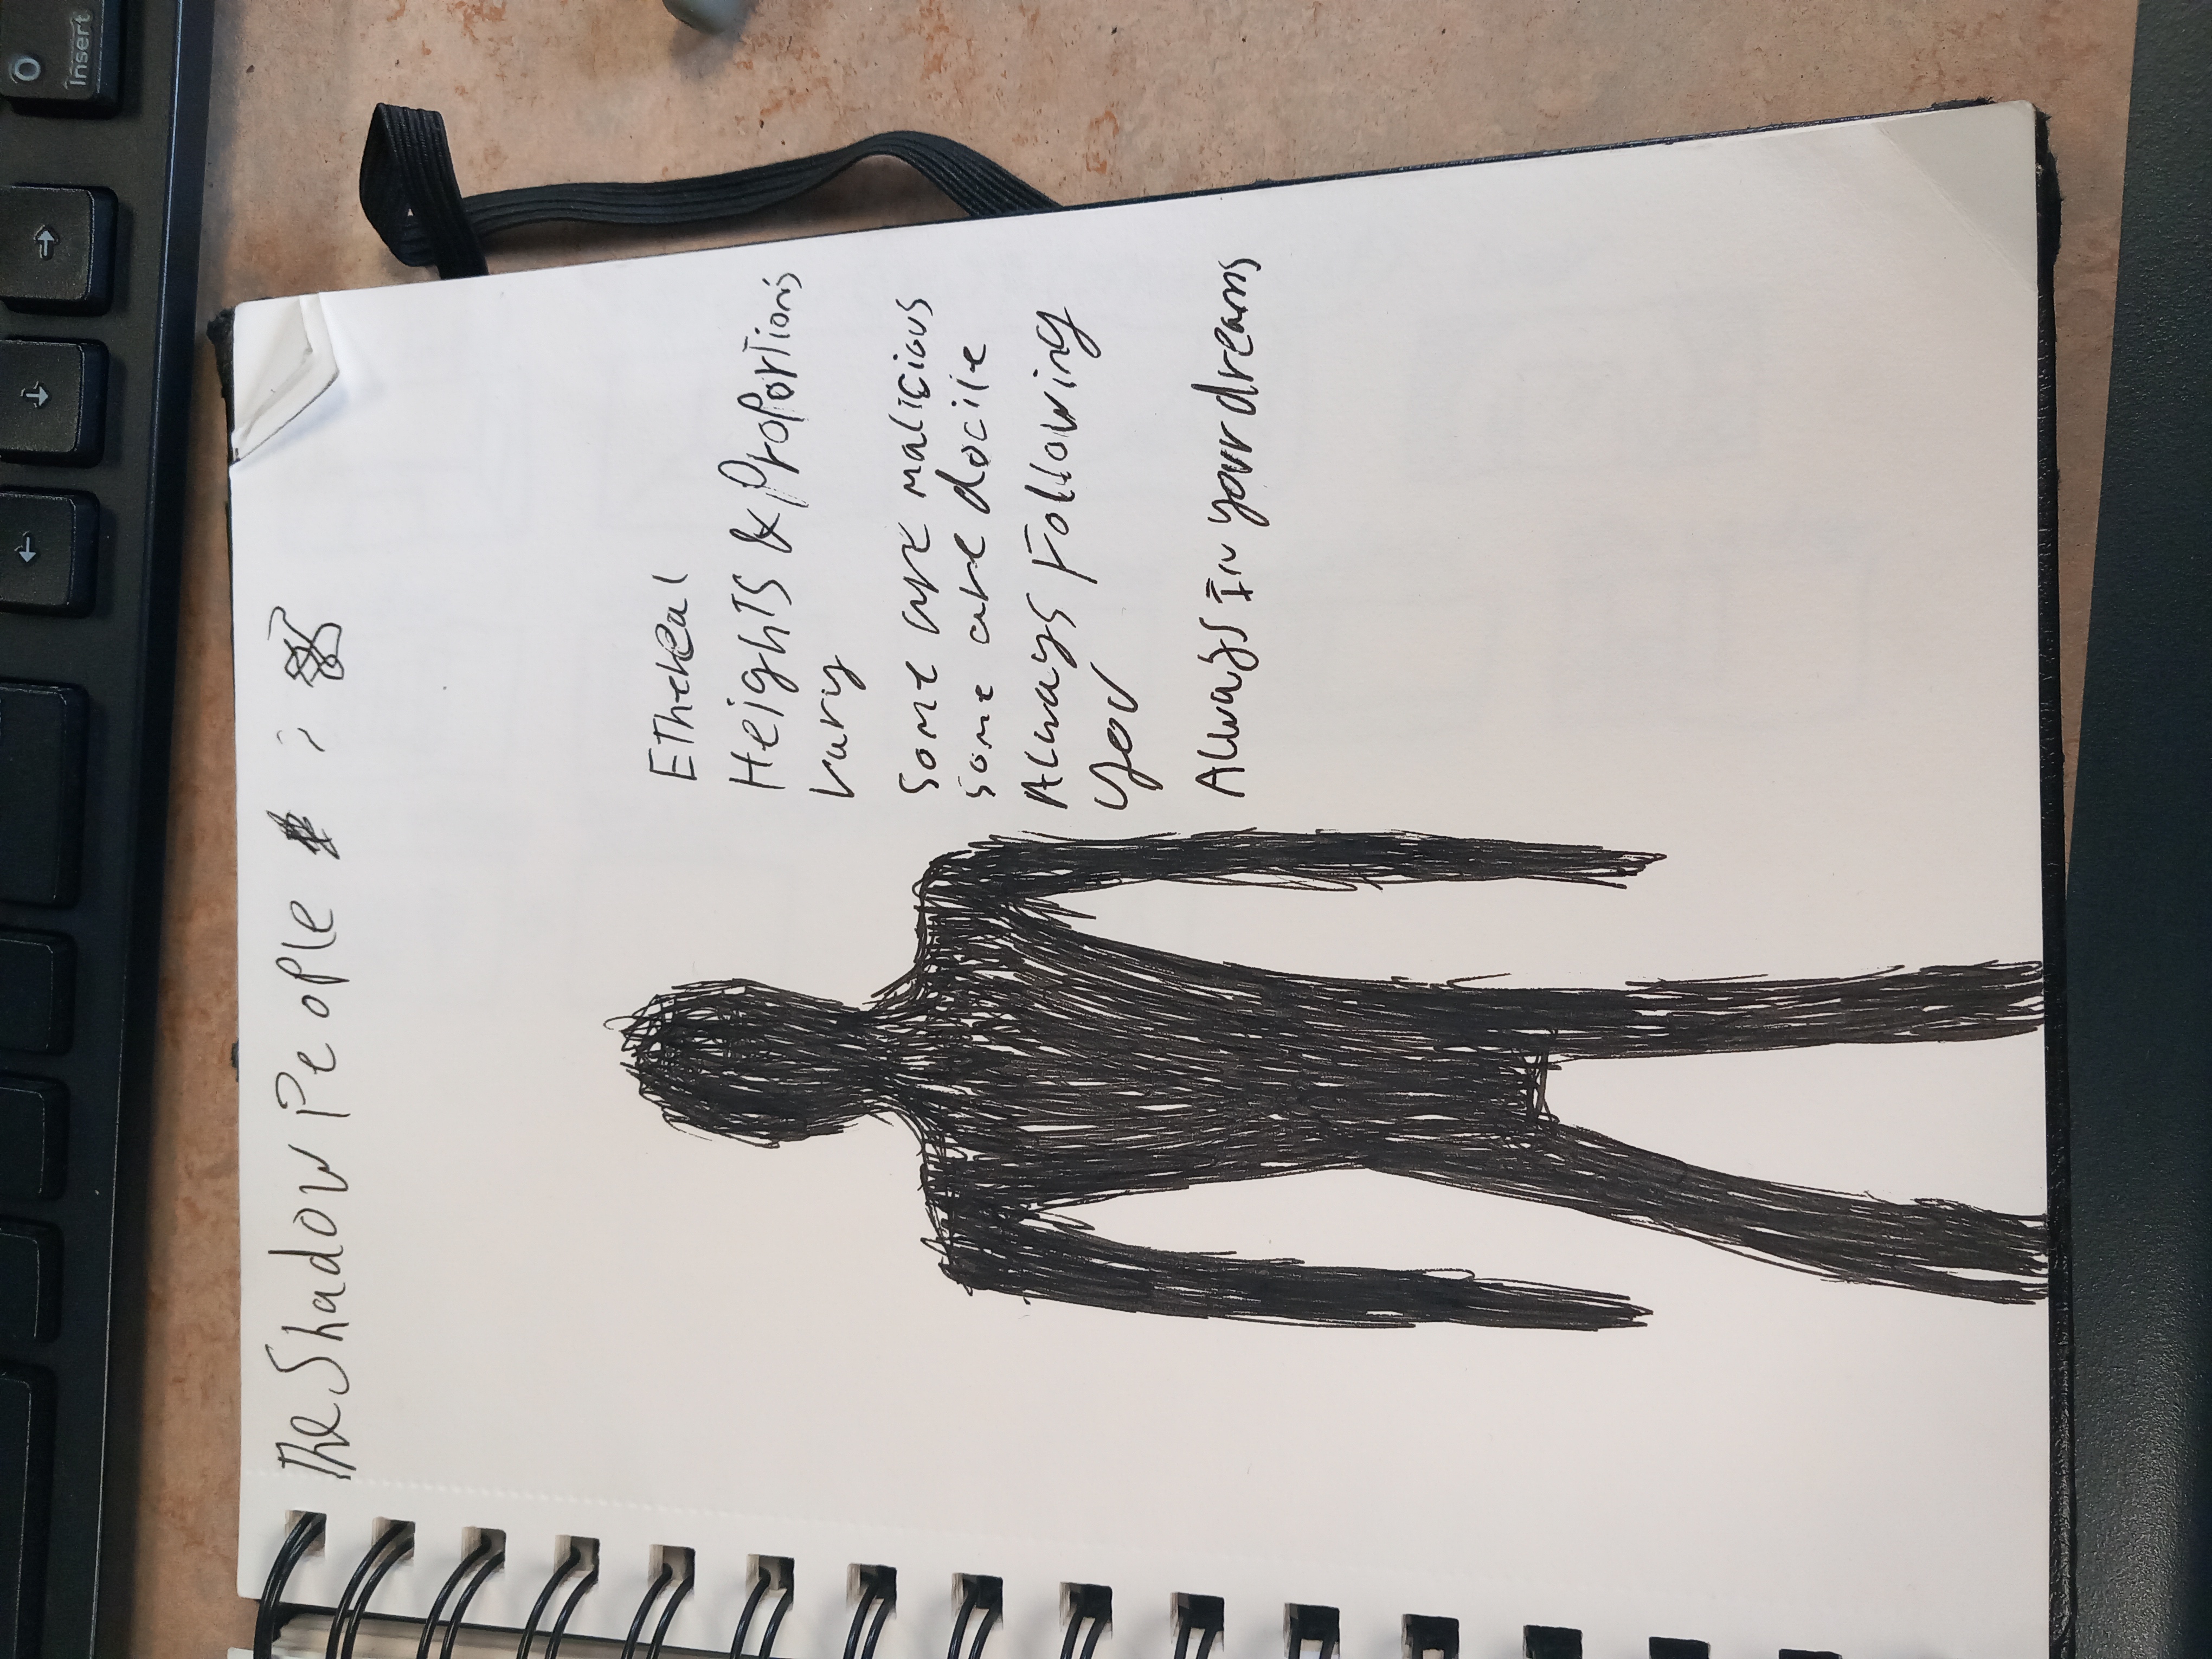 The Shadow People
Ethereal
Heights & Proportions
vary
some are malicious
some are docile
Always Following
you
Always In your dreams
← ↓ → 0
Insert